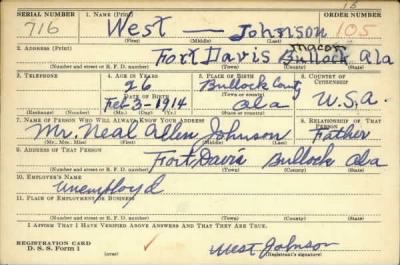 15
SERIAL NUMBER 1. NAME (Print) ORDER NUMBER
716 West — Johnson 105
(First) (Middle) (Last)
2. ADDRESS (Print) macon
Fort Davis Bullock Ala
(Number and street or R. F. D. number) (Town) (County) (State)
3. TELEPHONE 4. AGE IN YEARS 5. PLACE OF BIRTH 6. COUNTRY OF CITIZENSHIP
26 Bullock County
DATE OF BIRTH (Town or county)
Feb-3-1914 Ala U.S.A.
(Exchange) (Number) (Mo.) (Day) (Yr.) (State or country)
7. NAME OF PERSON WHO WILL ALWAYS KNOW YOUR ADDRESS 8. RELATIONSHIP OF THAT PERSON
Mr. Neal Allen Johnson Father
(Mr., Mrs., Miss) (First) (Middle) (Last)
9. ADDRESS OF THAT PERSON
Fort Davis Bullock Ala
(Number and street or R. F. D. number) (Town) (County) (State)
10. EMPLOYER'S NAME
Unemployd
11. PLACE OF EMPLOYMENT OR BUSINESS
(Number and street or R. F. D. number) (Town) (County) (State)
I AFFIRM THAT I HAVE VERIFIED ABOVE ANSWERS AND THAT THEY ARE TRUE.
REGISTRATION CARD
D. S. S. Form 1 (over) West Johnson
(Registrant's signature)